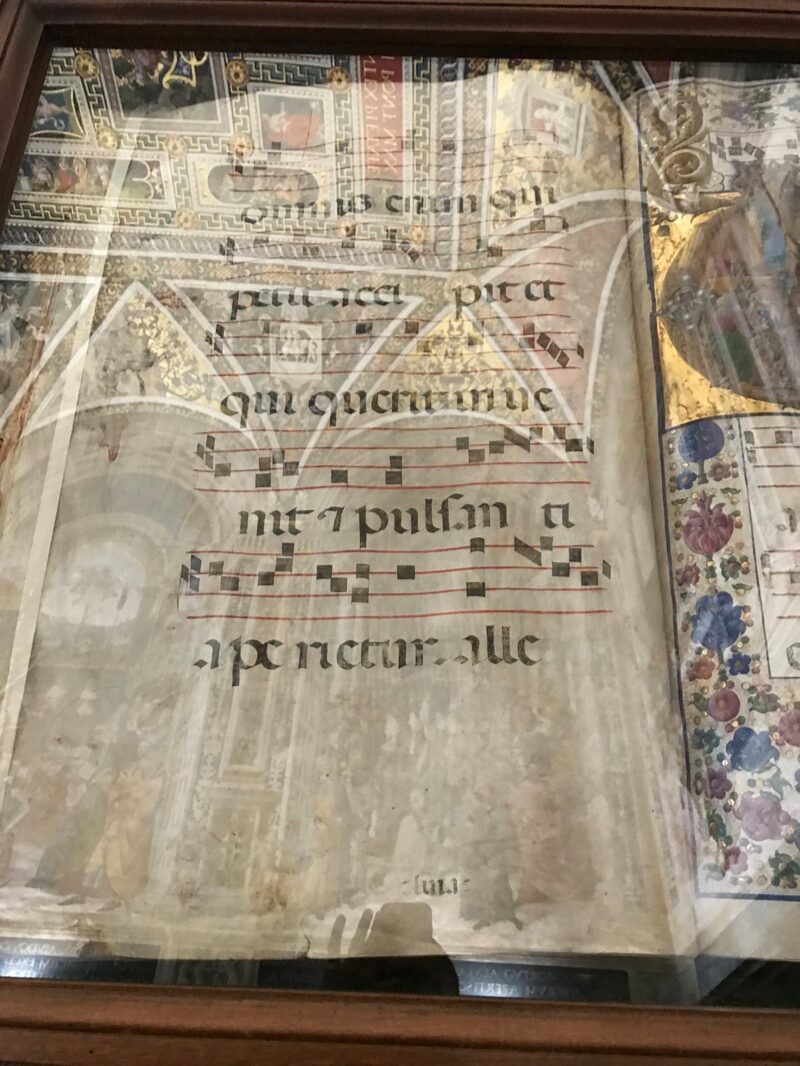 Omnis enim qui
petit acci pit et
qui querit inue
nit ⁊ pulsan ti
ape rietur. alle
:luia: